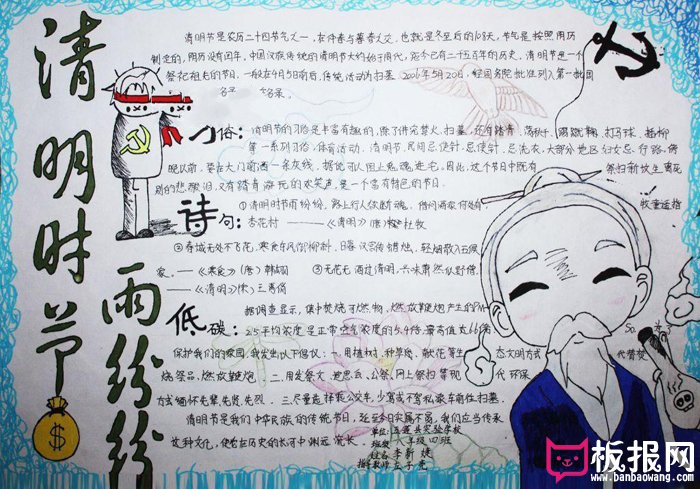 清明时节
雨纷纷
清明节是农历二十四节气之一，在仲春与暮春之交，也就是冬至后的108天，节气是按照阳历
制定的，阳历没有闰年，中国汉族传统的清明节大约始于周代，距今已有二千五百年的历史，清明节是一个
祭祀祖先的节日，一般在4月5日前后，传统活动为扫墓，2006年5月20日，经国务院批准列入第一批国
名录。
习俗：清明节的习俗是丰富有趣的，除了讲究禁火、扫墓，还有踏青、荡秋千、蹴鞠、打马球、插柳
等一系列习俗体育活动。清明节，民间忌使针，忌洗衣，大部分地区妇女忌行路。傍
晚以前，要在大门前洒一条灰线，据说可以阻止鬼魂进宅。因此，这个节日中既有
祭扫新坟生离死
别的悲酸泪，又有踏青游玩的欢笑声，是一个富有特色的节日。
诗句：①清明时节雨纷纷，路上行人欲断魂。借问酒家何处有
牧童遥指
杏花村 ——《清明》(唐)杜牧
②春城无处不飞花，寒食东风御柳斜。日暮汉宫传蜡烛，轻烟散入五侯
家。——《寒食》(唐)韩翃 ③无花无酒过清明，兴味萧然似野僧。
——《清明》(宋)王禹偁
低碳：据调查显示，集中焚烧可燃物，燃放鞭炮产生的PM
2.5平均浓度是正常空气浓度的5.4倍，最高值达
保护我们的家园，我发出以下倡议：一、用植树、种草、献花等生
态文明方式
代替焚
烧祭品，燃放鞭炮。二、用发祭文、公祭、网上祭扫等现
代环保
方式缅怀先辈、先贤、先烈。三、尽量选择乘公交车，少驾或不驾私家车前往扫墓。
清明节是我们中华民族的传统节日，我们应当传承
这种文化，使它在历史的长河中渊远流长。
实验学校
班级：
姓名：李新婕
指导教师：
板报网
www.banbaowang.com